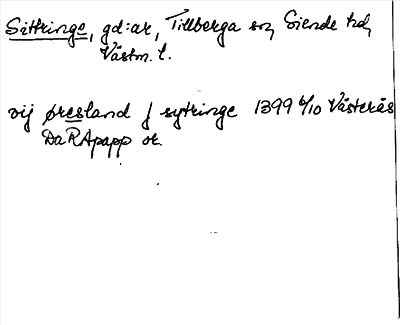 Sittringe, gd:ar, Tillberga sn, Siende hd,
Västm. l.
vij øresland j sytringe 1399 6/10 Västerås
DaRApapp or.